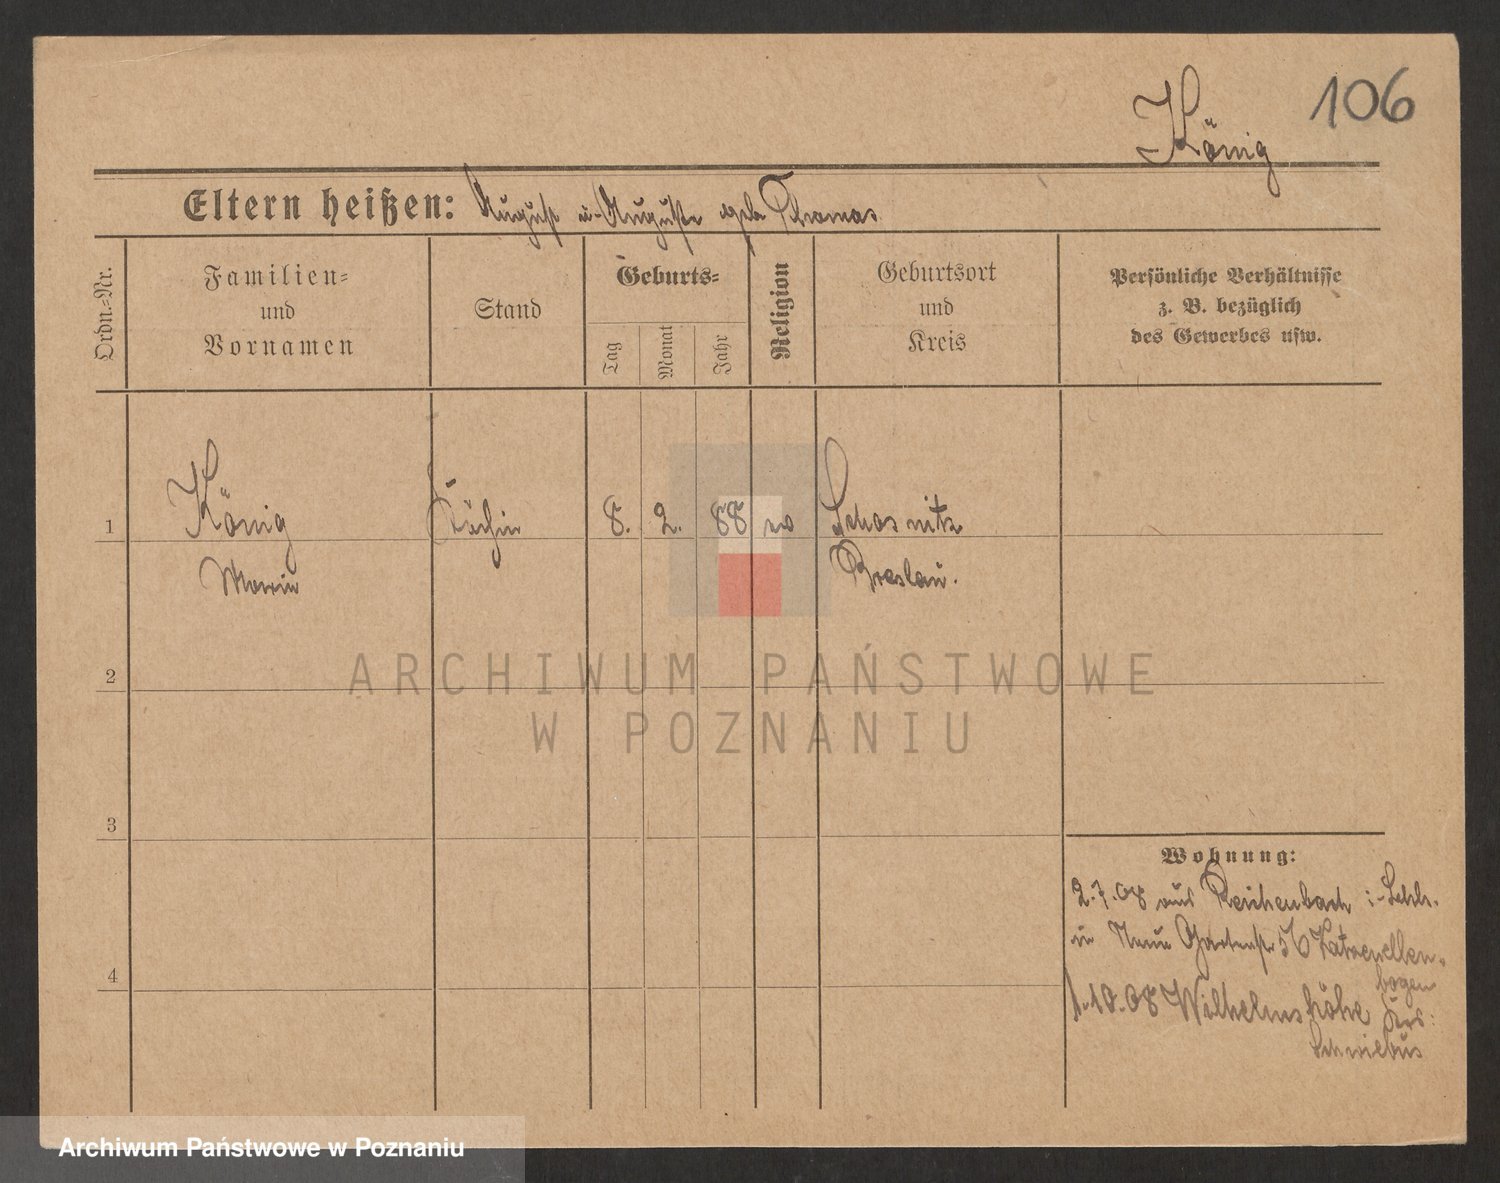 106
König
Eltern heißen: August u. Auguste geb Thomas
Ordn.-Nr.
Familien-
und
Vornamen
Stand
Geburts-
Tag
Monat
Jahr
Religion
Geburtsort
und
Kreis
Persönliche Verhältnisse
z. B. bezüglich
des Gewerbes usw.
1
König
Marie
Köchin
8. 2. 88
ev
Schosnitz
Breslau.
2
ARCHIWUM PAŃSTWOWE
W POZNANIU
3
4
Wohnung:
2.7.08 aus Reichenbach i. Schls.
in Neue Gartenstr 56 Katzenellen-
bogen
1.10.08 Wilhelmshöhe
Schwiebus
Archiwum Państwowe w Poznaniu